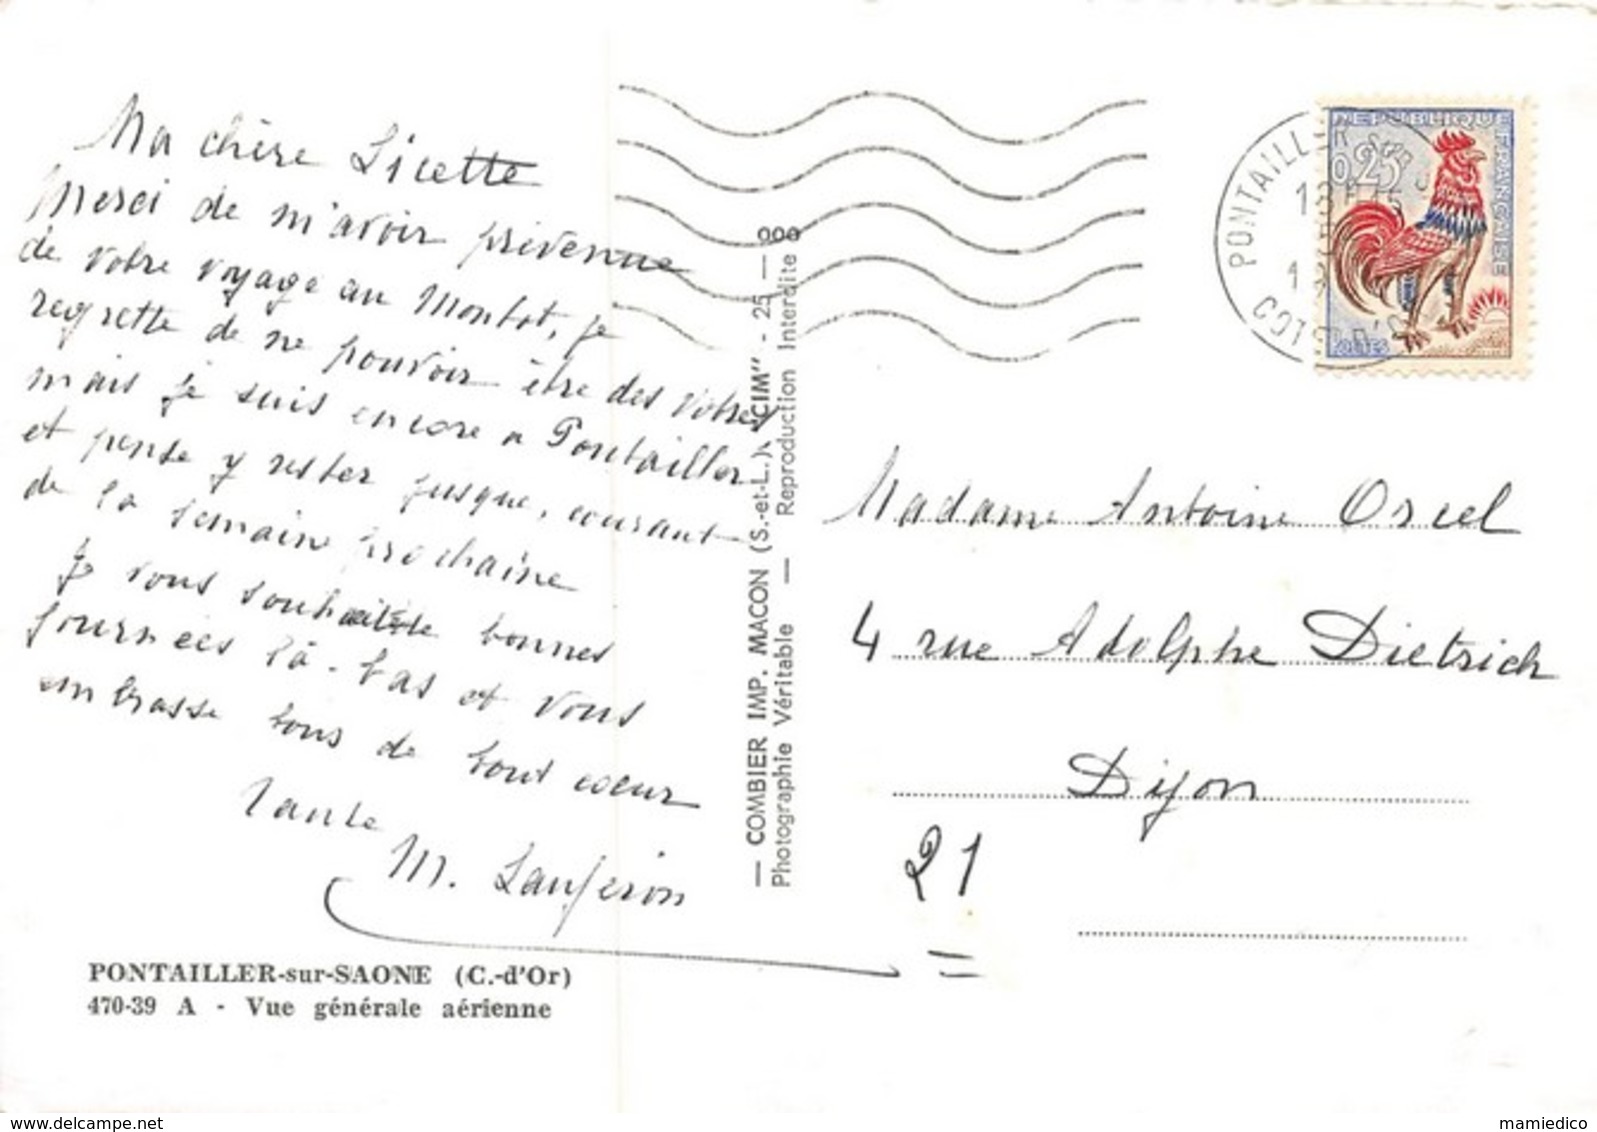 Ma chère Licette
Merci de m'avoir prévenue
de votre voyage au Montot, je
regrette de ne pouvoir être des votres
mais je suis encore a Pontailler
et pense y rester jusque, courant
de la semaine prochaine
Je vous souhaite bonnes
journées là-bas et vous
embrasse tous de tout coeur
Tante
M. Lauferon
PONTAILLER-sur-SAONE (C.-d'Or)
470-39 A - Vue générale aérienne
— COMBIER IMP. MACON (S.-et-L.) "CIM" - 25 — 000
Photographie Véritable — Reproduction Interdite
REPUBLIQUE FRANÇAISE
0,25
POSTES
PONTAILLER SUR
COTE D'OR
Madame Antoine Orcel
4 rue Adolphe Dietrich
Dijon
21
mamiedico